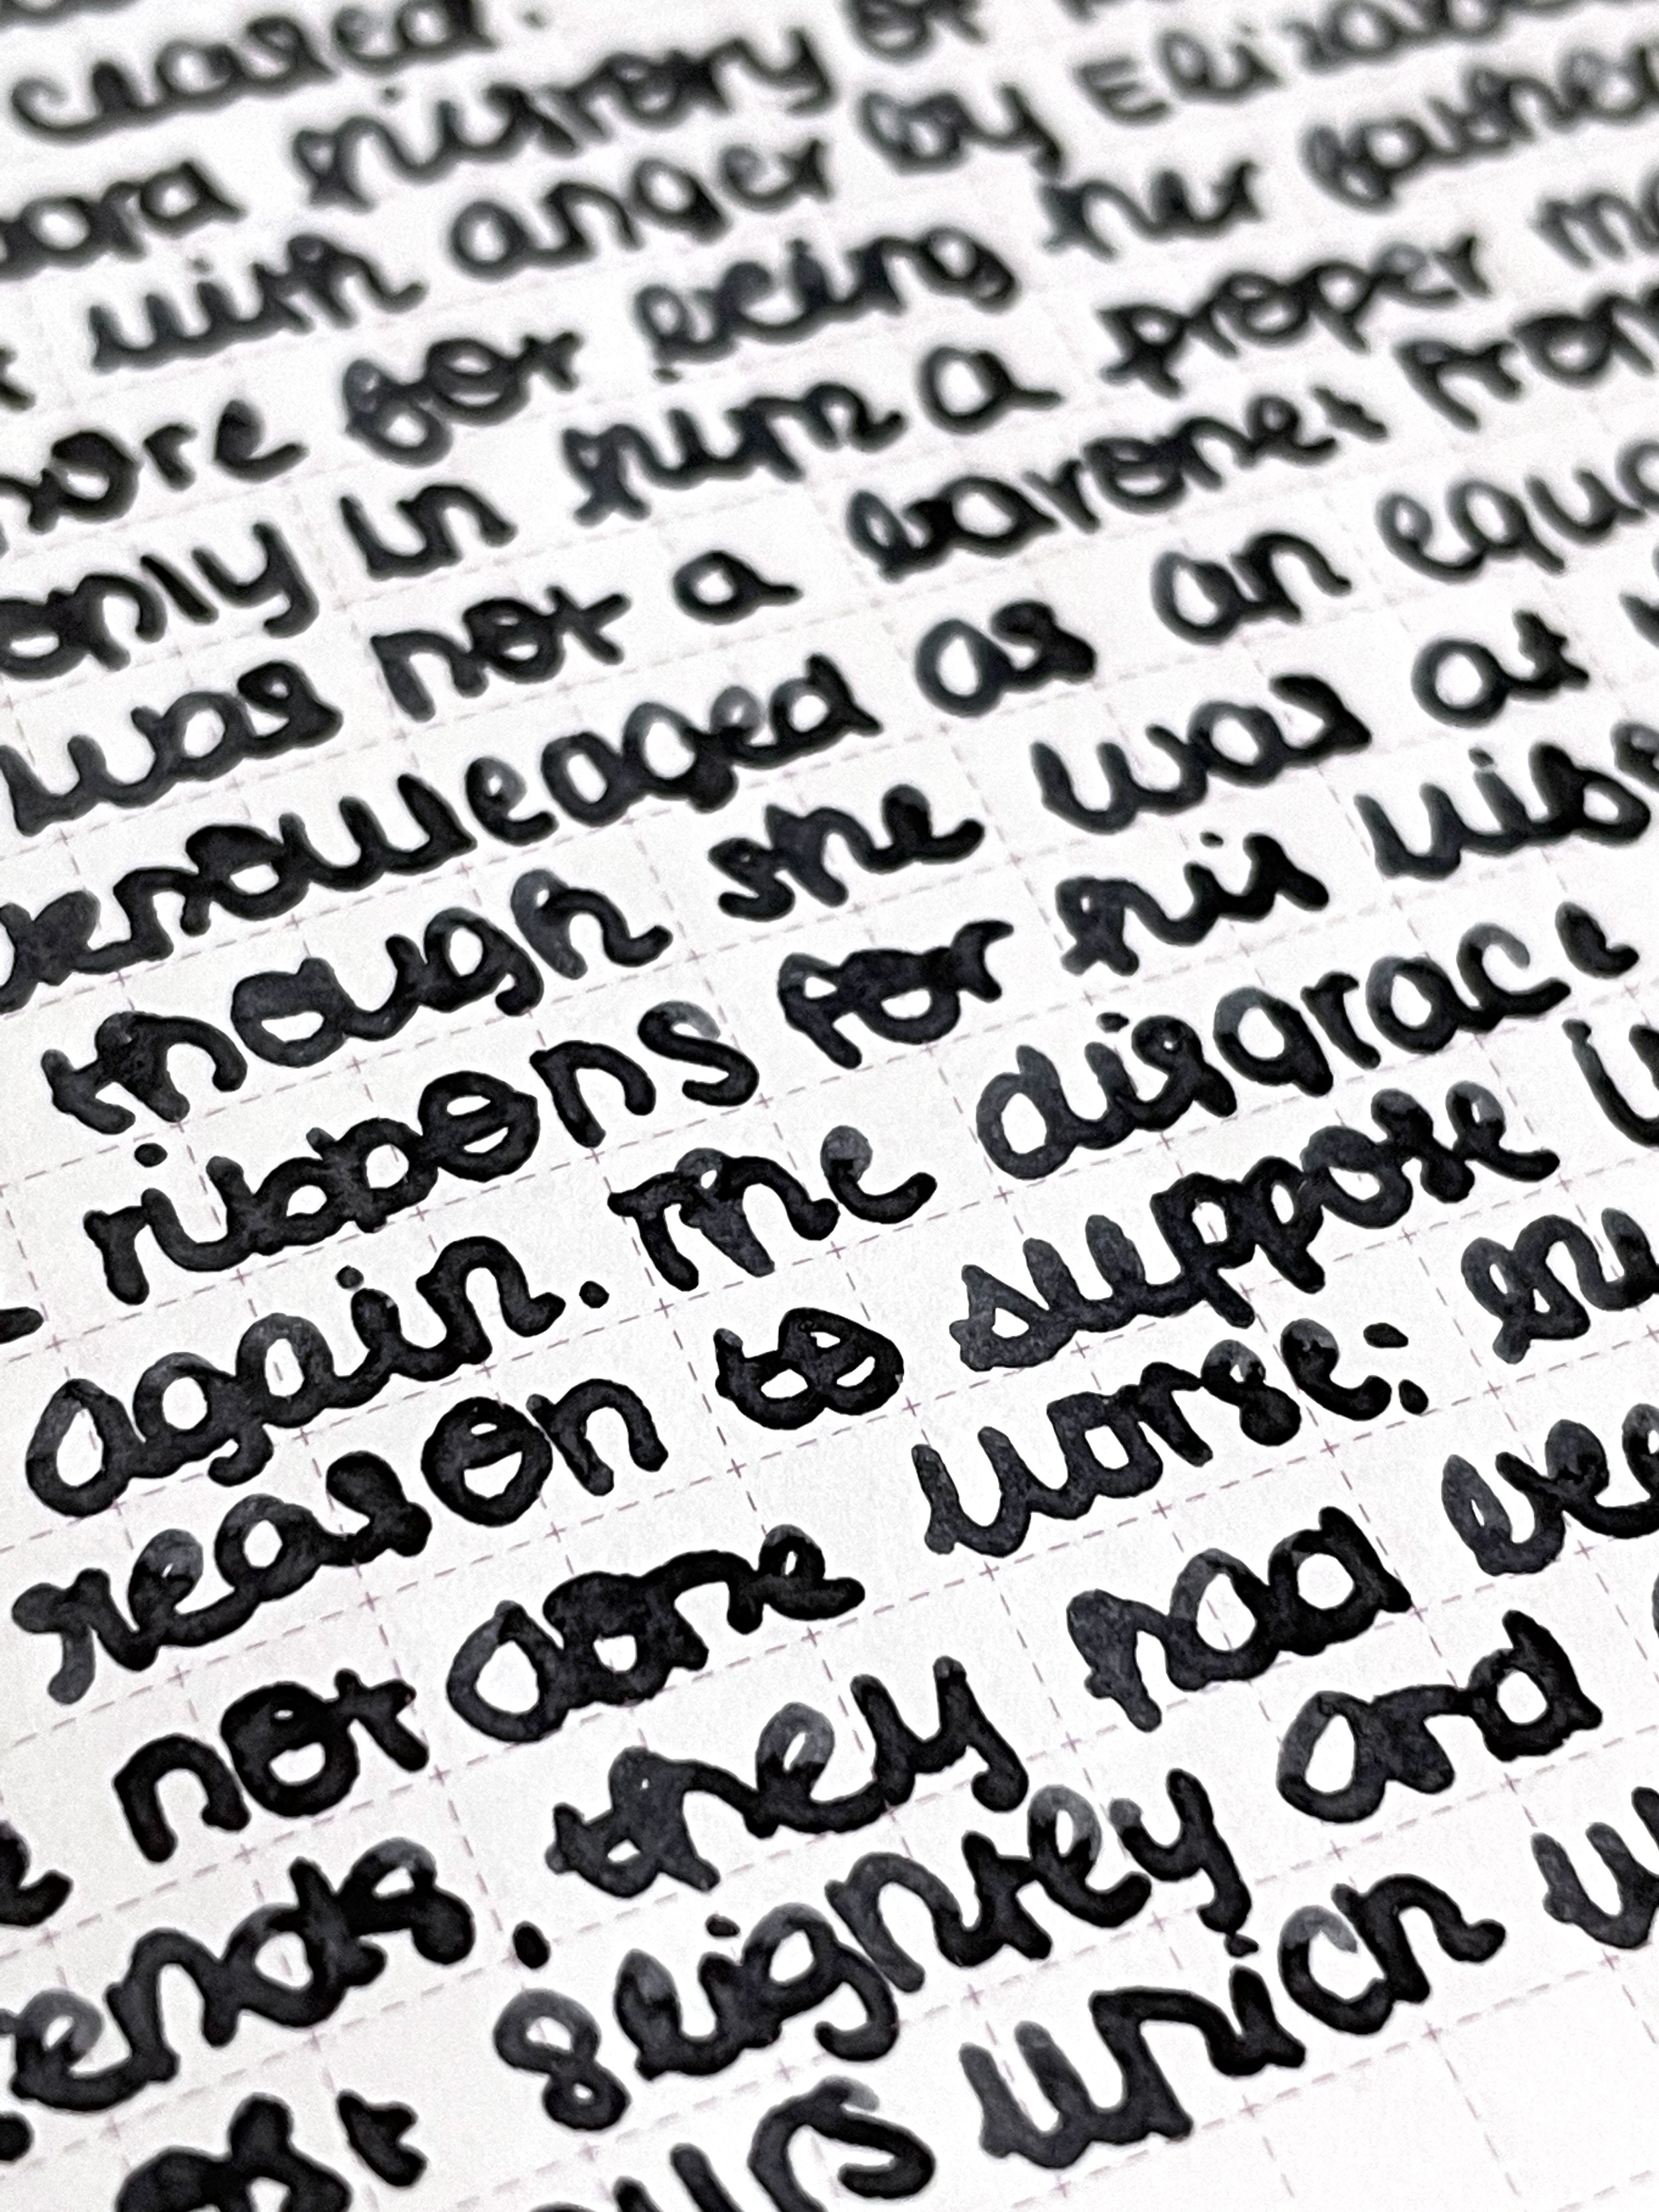 ceased.
history of
with anger by Elizabe
more for being her father
only in him a proper ma
was not a baronet from
knowledged as an equa
though she was at
ribbons for his wife
again. The disgrace
reason to suppose i
not done worse; bu
ends, they had bee
ost slightly and
ours which w